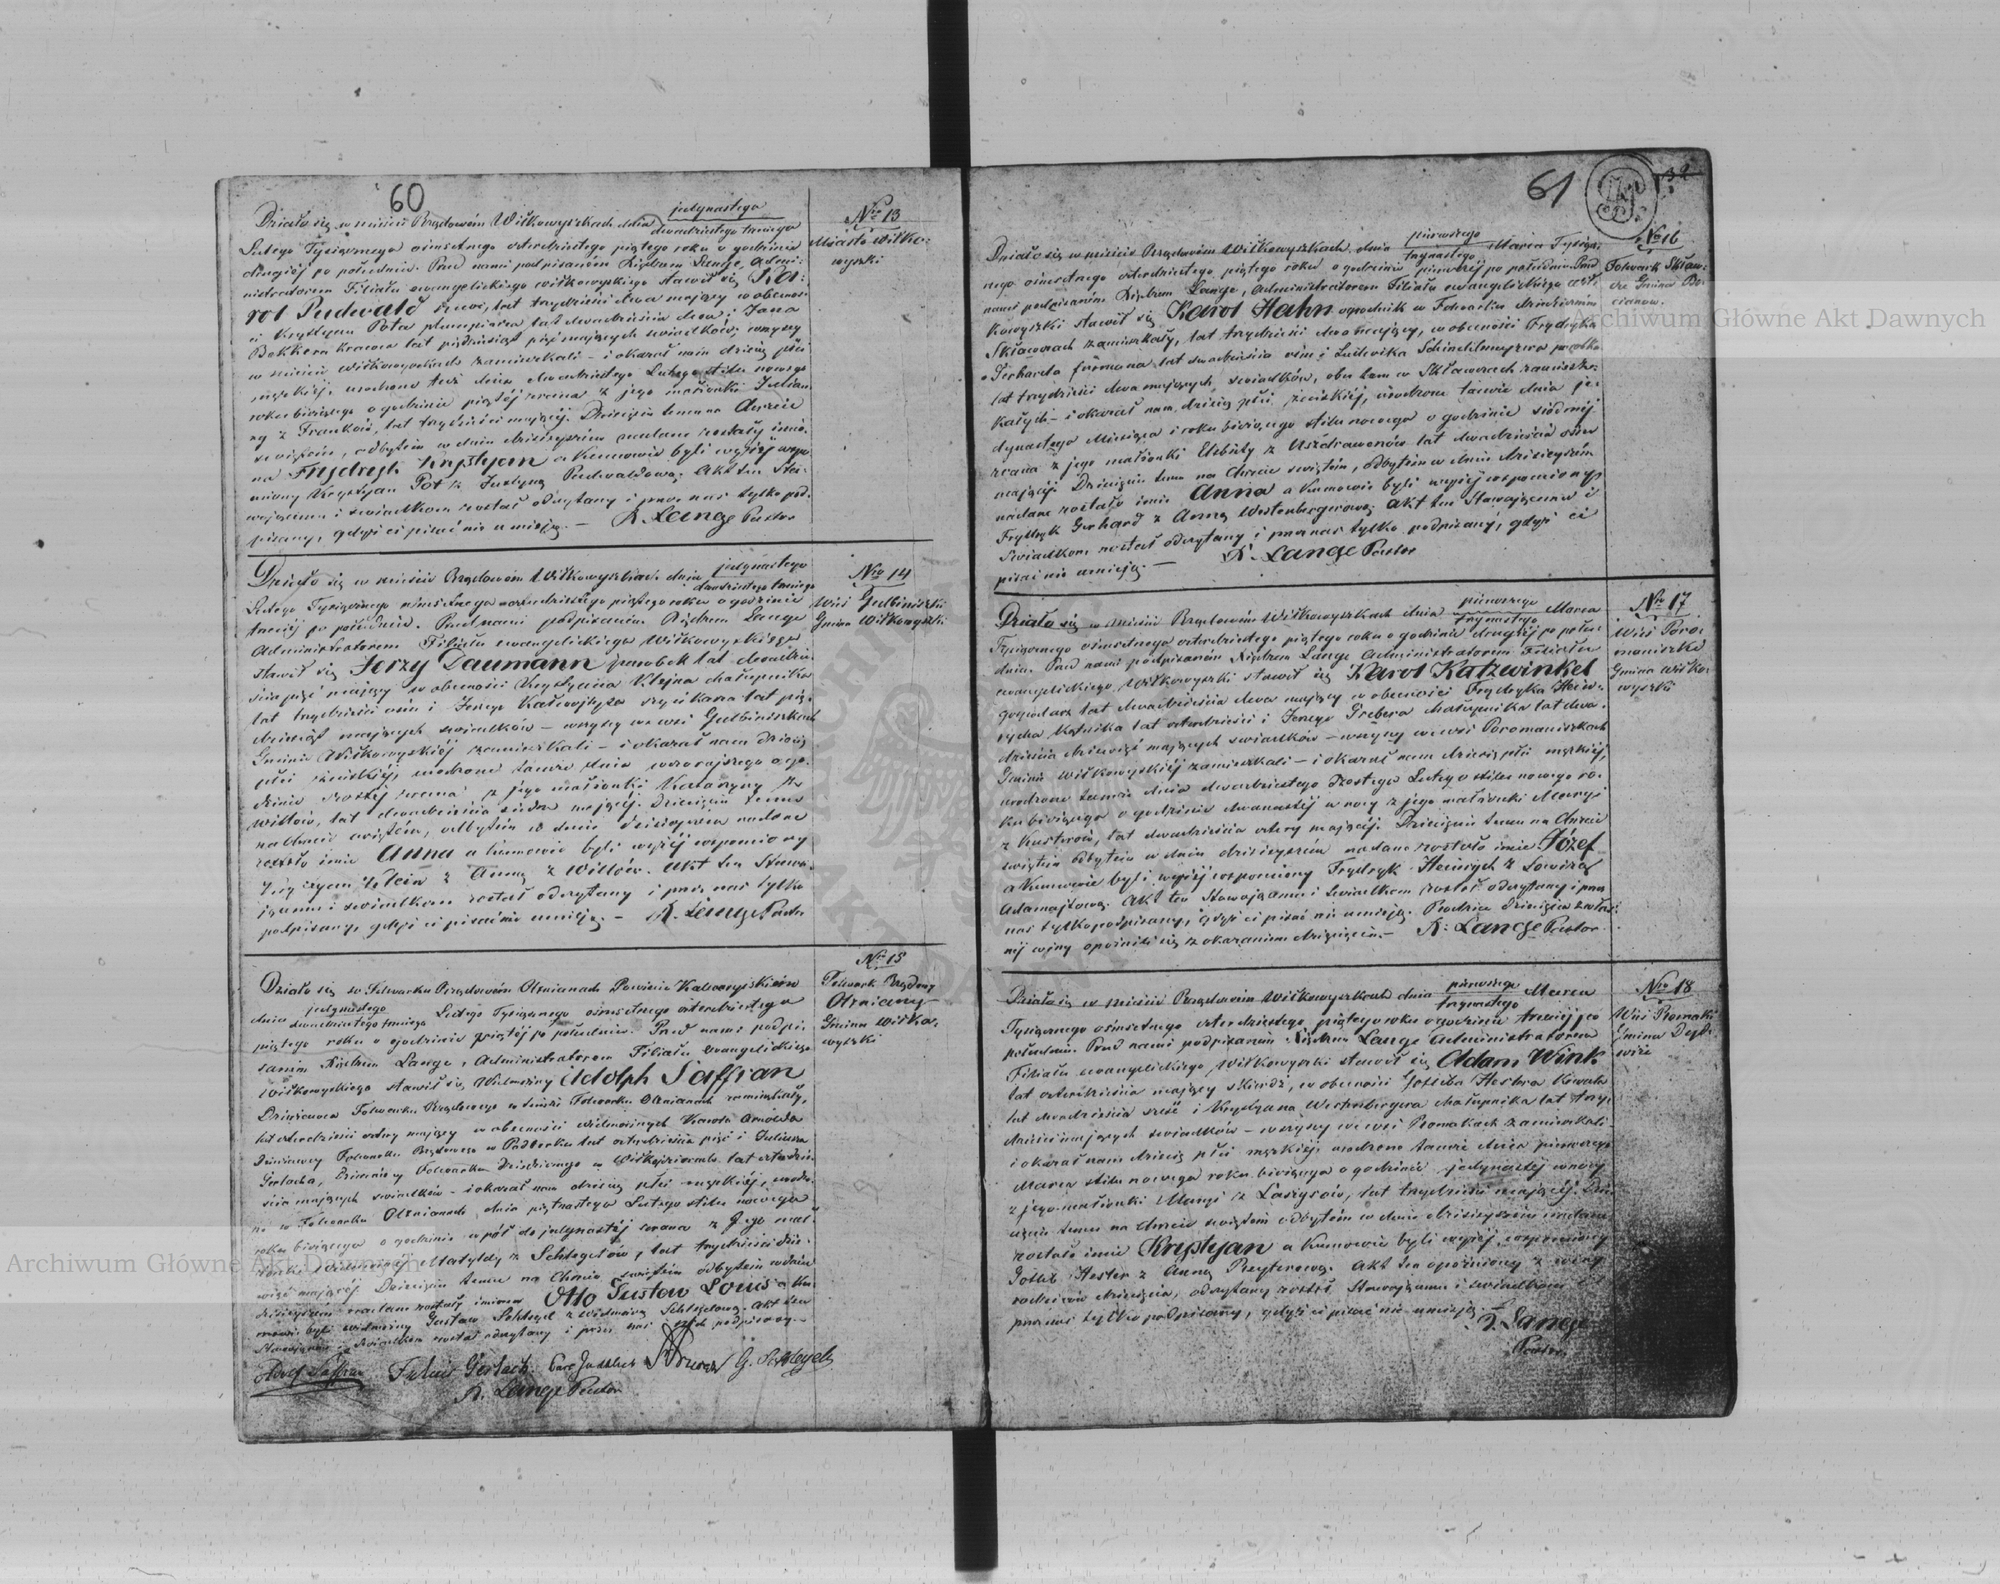 60
Nro 13
Miasto Wiłko-
wyszki
Działo się w mieście Rządowém Wiłkowyszkach dnia jedynastego / dwudziestego trzeciego
Lutego Tysiącznego ośmsetnego czterdziestego piątego roku o godzinie
drugiéj po południu. Przed nami podpisaném Księdzem Lange, Admi-
nistratorem Filiału ewangelickiego wiłkowyskiego stawił się Ka-
rol Pudwald lat trzydzieści dwa mający w obecnos-
ci Krystjana Pota lat dwadzieścia dwa i Jana
Bekkera krawca lat pięćdziesiąt pięć mających świadków, wszyscy
w mieście Wiłkowyszkach zamieszkali – i okazał nam dziecię płci
męzkiéj, urodzone tuż dnia dwudziestego Lutego stilu nowego
roku bieżącego o godzinie piątéj zrana z jego małżonki Julian-
ny z Franków, lat trzydzieści mającéj. Dziecięciu temu na Chrzcie
świętém, odbytém w dniu dzisiejszém nadane zostały imio-
na Frydryk Krystyan a Kumowie byli wyżéj wspo-
mniony Krystyan Pot z Justyną Pudwaldową. Akt ten Sta-
wającemu i świadkom został odczytany i przez nas tylko pod-
pisany, gdyż ci pisać nie umieją. – R. Lange Pastor
Nro 14
Wieś Gudbiniszki
Gmina Wiłkowyszki
Działo się w mieście Rządowém Wiłkowyszkach dnia jedynastego / dwudziestego trzeciego
Lutego Tysiącznego ośmsetnego czterdziestego piątego roku o godzinie
trzeciéj po południu. Przed nami podpisaném Księdzem Lange
Administratorem Filiału ewangelickiego Wiłkowyskiego
stawił się Jerzy Daumann parobek lat dwadzie-
ścia pięć mający w obecności Krystyana Klejna chałupnika
lat trzydzieści ośm i Jerzego
mających świadków – wszyscy we wsi Gudbiniszkach
Gminie Wiłkowyskiéj zamieszkali – i okazał nam dziecię
płci żeńskiéj, urodzone tamże dnia wczorajszego o go-
dzinie szóstéj zrana z jego małżonki Katarzyny z
Willów, lat dwadzieścia siedm mającéj. Dziecięciu temu
na Chrzcie świętém, odbytém w dniu dzisiejszém nadane
zostało imie Anna a kumowie byli wyżéj wspomniony
Krystyan Klein z Anną z Willów. Akt ten Stawa-
jącemu i świadkom został odczytany i przez nas tylko
podpisany, gdyż ci pisać nie umieją. – R. Lange Pastor
Nro 15
Folwark Rządowy
Olzniany
Gmina Wiłko-
wyszki
Działo się w Folwarku Rządowém Olznianach Powiecie Kalwaryjskiém
dnia jedynastego / dwudziestego trzeciego Lutego Tysiącznego ośmsetnego czterdziestego
piątego roku o godzinie piątéj po południu. Przed nami podpi-
saném Księdzem Lange, Administratorem Filiału ewangelickiego
wiłkowyskiego stawił się Wielmożny Adolph Saffran
Dzierżawca Folwarku Rządowego w tymże Folwarku Olznianach zamieszkały,
lat czterdzieści cztery mający w obecności wielmożnych Karola Arnolda
Dzierżawcy Folwarku Rządowego w lat czterdzieścia pięć i Juliusza
Gerlacha, Dzierżawcy Folwarku Dziedzicznego w lat czterdzie-
ścia mających świadków – i okazał nam dziecię płci męzkiéj, urodzo-
ne w Folwarku Olznianach dnia piętnastego Lutego stilu nowego
roku bieżącego o godzinie wpół do jedynastéj zrana z Jego mał-
żonki wielmożnéj Matyldy z Schlegelów, lat trzydzieści dzie-
więć mającéj. Dziecięciu temu na Chrzcie świętém odbytém w dniu
dzisiejszém nadane zostały imiona Otto Gustaw Louis a Ku-
mowie byli wielmożny Gustaw Schlegel z Wielmożną Schlegelową. Akt ten
Stawającemu i świadkom został odczytany i przez nas i nich podpisany.–
Adolf Saffran Julius Gerlach G. Schlegel
R. Lange Pastor
61
Nro 16
Folwark Skław-
cze Gmina Bar-
cianów.
Działo się w mieście Rządowém Wiłkowyszkach dnia pierwszego / trzynastego Marca Tysią-
cznego ośmsetnego czterdziestego piątego roku o godzinie pierwszéj po południu. Przed
nami podpisaném Księdzem Lange, Administratorem Filiału ewangelickiego wił-
kowyszki stawił się Karol Hahn ogrodnik w Folwarku dziedziczném
zamieszkały, lat trzydzieści dwa mający, w obecności Frydryka
Gerharda furmana lat dwadzieścia ośm i Ludwika parobka
lat trzydzieści dwa mających świadków, obu tam w zamiesz-
kałych – i okazał nam dziecię płci żeńskiéj, urodzone tamże dnia je-
dynastego miesiąca i roku bieżącego stilu nowego o godzinie siódméj
zrana z jego małżonki Elżbiety z lat dwadzieścia ośm
mającéj. Dziecięciu temu na Chrzcie świętém, odbytém w dniu dzisiejszém
nadane zostało imie Anna a Kumowie byli wyżéj wspomniony
Frydryk Gerhard z Anną Westenbergerową. Akt ten Stawającemu i
świadkom został odczytany i przez nas tylko podpisany, gdyż ci
pisać nie umieją. – R. Lange Pastor
Nro 17
Wieś Poro-
maniszki
Gmina Wiłko-
wyszki
Działo się w mieście Rządowém Wiłkowyszkach dnia pierwszego / trzynastego Marca
Tysiącznego ośmsetnego czterdziestego piątego roku o godzinie drugiéj po połu-
dniu. Przed nami podpisaném Księdzem Lange Administratorem Filiału
ewangelickiego Wiłkowyszki stawił się Karol Katzwinkel
gospodarz lat dwadzieścia dwa mający w obecności Frydryka Hein-
rycha Kątnika lat czterdzieści i Jerzego Grebera chałupnika lat dwa-
dzieścia dziewięć mających świadków – wszyscy we wsi Poromaniszkach
Gminie Wiłkowyskiéj zamieszkali – i okazał nam dziecię płci męzkiéj,
urodzone tamże dnia dwudziestego szóstego Lutego stilu nowego ro-
ku bieżącego o godzinie dwunastéj w nocy z jego małżonki Maryi
z Kusterów, lat dwadzieścia cztery mającéj. Dziecięciu temu na Chrzcie
świętém odbytém w dniu dzisiejszém nadane zostało imie Józef
a Kumowie byli wyżéj wspomniony Frydryk Heinrych z Lowizą
Adamajtową. Akt ten Stawającemu i świadkom został odczytany i przez
nas tylko podpisany, gdyż ci pisać nie umieją. Rodzice dziecięcia z włas-
néj winy opóźnili się z okazaniem dziecięcia. – R. Lange Pastor
Nro 18
Wieś Romaki
Gmina Dept-
wize
Działo się w mieście Rządowém Wiłkowyszkach dnia pierwszego / trzynastego Marca
Tysiącznego ośmsetnego czterdziestego piątego roku o godzinie trzeciéj po
południu. Przed nami podpisaném Księdzem Lange Administratorem
Filiału ewangelickiego Wiłkowyszki stawił się Adam Wink
lat czterdzieścia mający w obecności Gottliba Hestra kowala
lat dwadzieścia sześć i Krystyana Westenbergera chałupnika lat trzy-
dzieści mających świadków – wszyscy we wsi Romakach zamieszkali –
i okazał nam dziecię płci męzkiéj, urodzone tamże dnia pierwszego
Marca stilu nowego roku bieżącego o godzinie jedynastéj w nocy
z jego małżonki Maryi z lat trzydzieści mającéj. Dzie-
cięciu temu na Chrzcie świętém odbytém w dniu dzisiejszém nadane
zostało imie Krystyan a Kumowie byli wyżéj wspomniony
Gotlib Hester z Anną Reyterową. Akt ten opóźniony z winy
rodziców dziecięcia, odczytany został Stawającemu i świadkom i
przez nas tylko podpisany, gdyż ci pisać nie umieją. – R. Lange
Pastor.
Archiwum Główne Akt Dawnych
Archiwum Główne Akt Dawnych